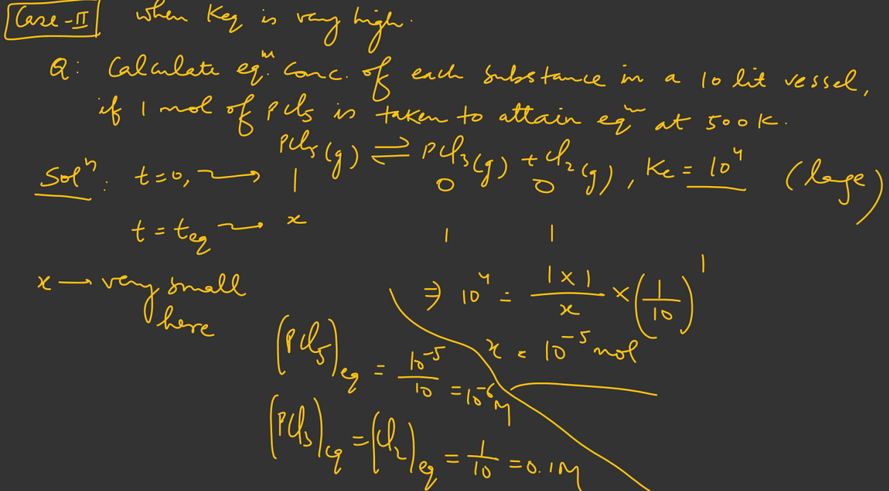 Case-II when Keq is very high.
Q: Calculate eqᵐ. conc. of each substance in a 10 lit vessel,
if 1 mol of PCl₅ is taken to attain eqᵐ at 500K.
PCl₅(g) ⇌ PCl₃(g) + Cl₂(g), Kc = 10⁴ (large)
Solⁿ: t=0, → 1 0 0
t = teq → x 1 1
x → very small here
⇒ 10⁴ = (1×1)/x × (1/10)¹
x = 10⁻⁵ mol
(PCl₅)eq = 10⁻⁵/10 = 10⁻⁶ M
(PCl₃)eq = (Cl₂)eq = 1/10 = 0.1M